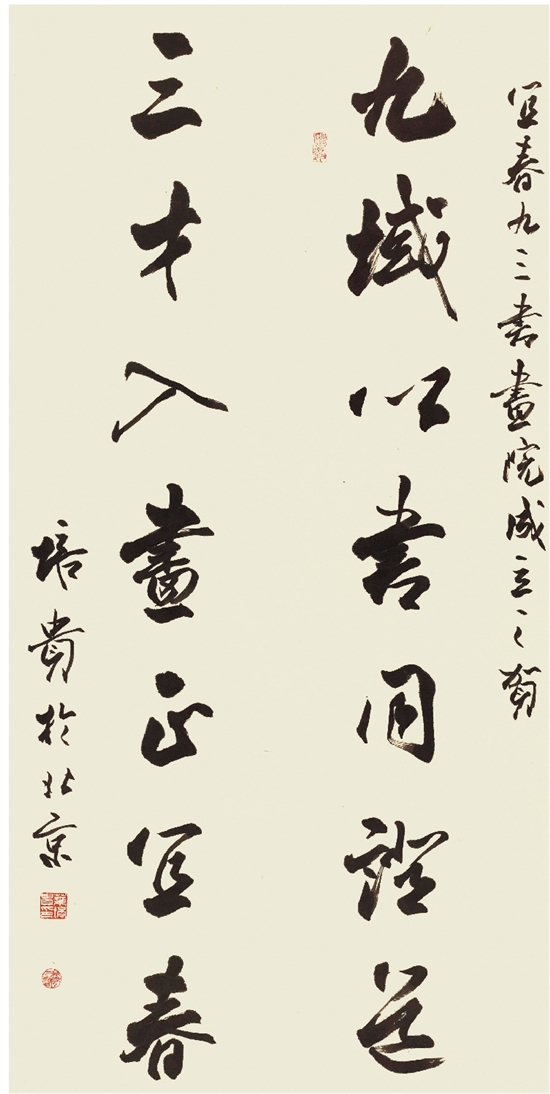 宜春九三書畫院成立之賀
九域以書同證道
三才入畫正宜春
培貴於北京